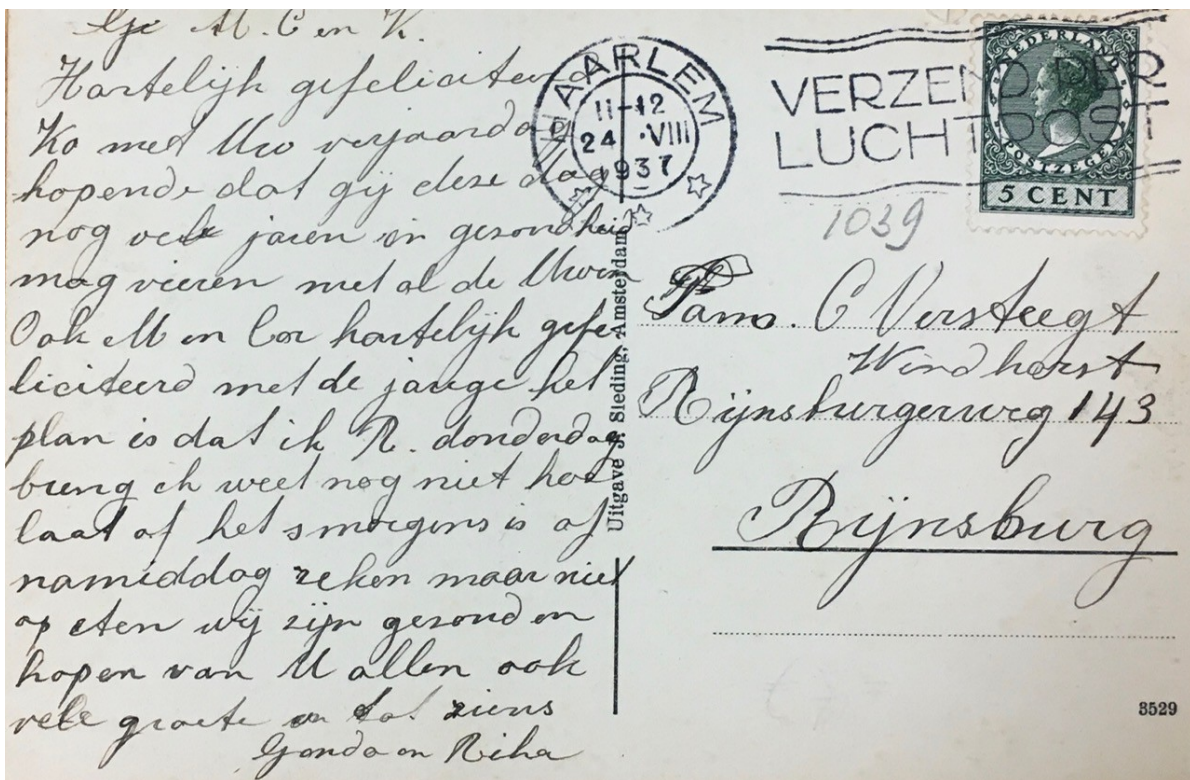 M. C en K.
Hartelijk gefeliciteerd
Ko met Uw verjaardag
hopende dat gij deze dag
nog vele jaren in gezondheid
mag vieren met al de Uwen
Ook M en Cor hartelijk gefe-
liciteerd met de jarige het
plan is dat ik R. donderdag
breng ik weet nog niet hoe
laat of het smorgens is of
namiddag reken maar niet
op eten wij zijn gezond en
hopen van U allen ook
vele groete en tot ziens
Gonda en Riha
HAARLEM
11-12
24 VIII
1937
VERZEND PER
LUCHTPOST
NEDERLAND
POSTZEGEL
5 CENT
1039
Fam. C Versteegt
Windhorst
Rijnsburgerweg 143
Rijnsburg
Uitgave J. Sleding, Amsterdam
3529